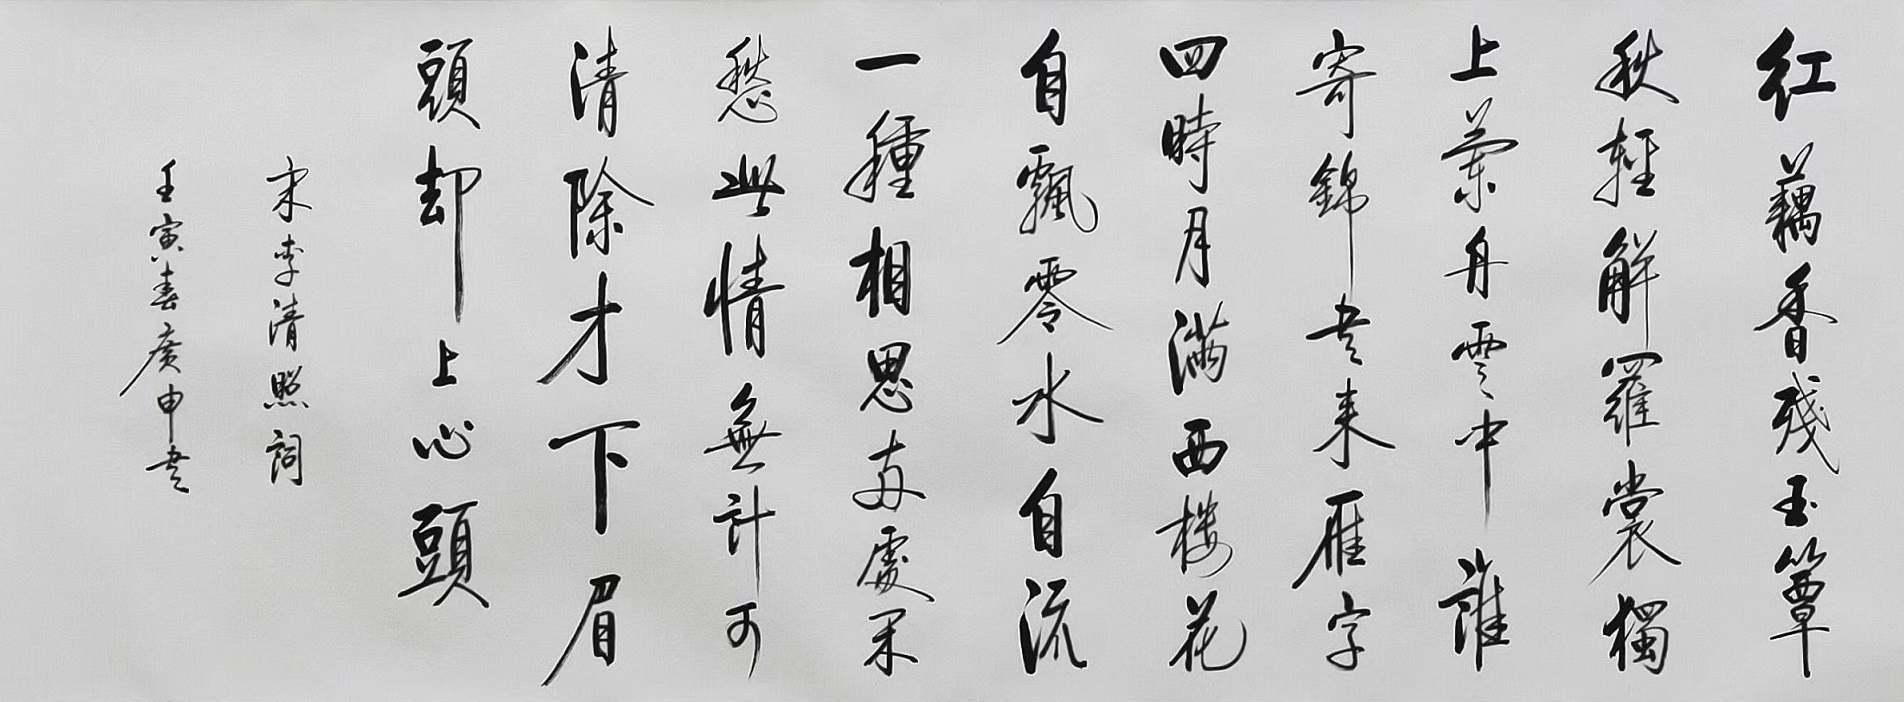 红藕香殘玉簟
秋輕解羅裳獨
上蘭舟雲中誰
寄錦书来雁字
四時月滿西楼花
自飄零水自流
一種相思两處闲
愁此情無計可
清除才下眉
頭却上心頭
宋李清照詞
壬寅春廣申书